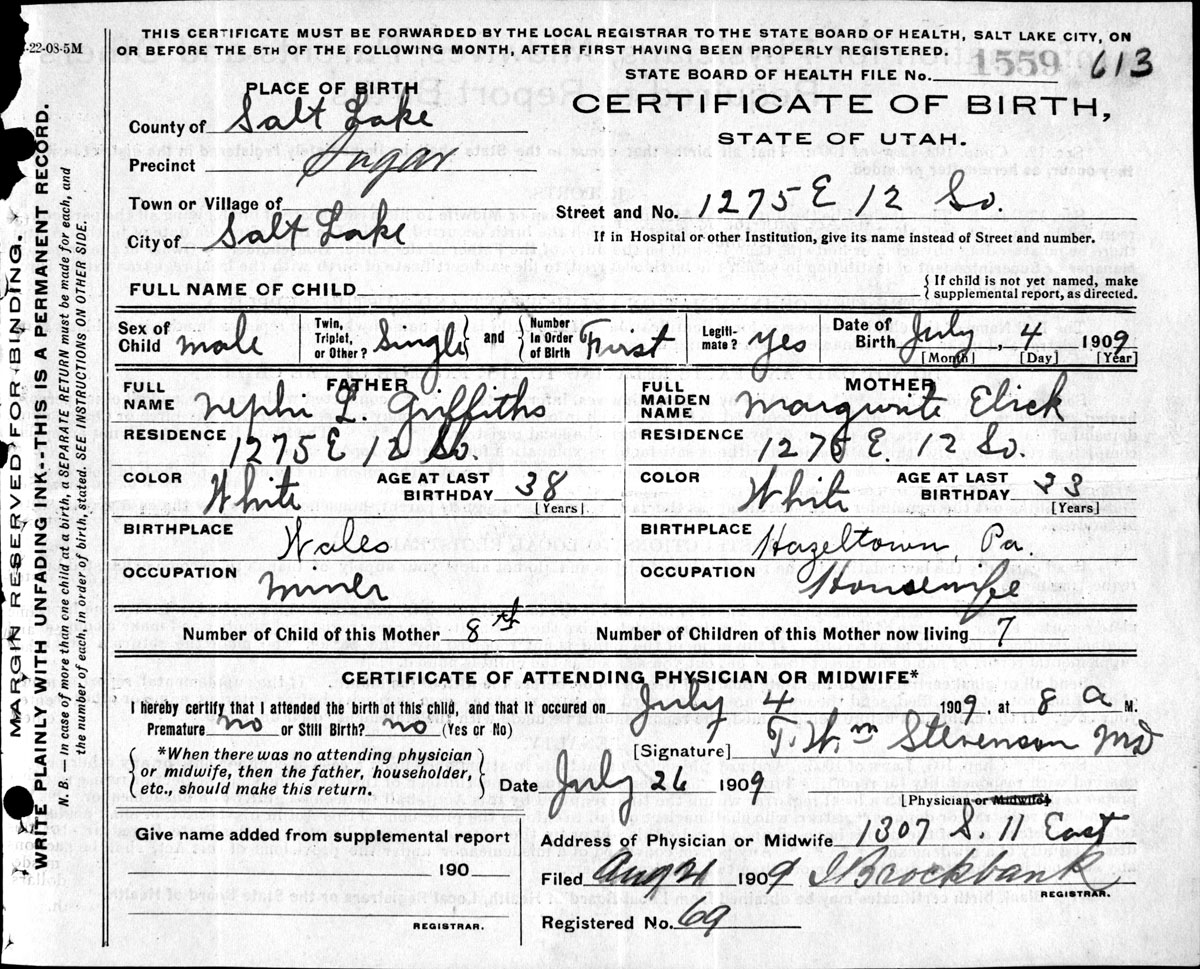 -22-08-5M
THIS CERTIFICATE MUST BE FORWARDED BY THE LOCAL REGISTRAR TO THE STATE BOARD OF HEALTH, SALT LAKE CITY, ON
OR BEFORE THE 5TH OF THE FOLLOWING MONTH, AFTER FIRST HAVING BEEN PROPERLY REGISTERED.
STATE BOARD OF HEALTH FILE No. 1559 613
PLACE OF BIRTH
CERTIFICATE OF BIRTH,
STATE OF UTAH.
County of Salt Lake
Precinct Sugar
Town or Village of
Street and No. 1275 E 12 So.
City of Salt Lake
If in Hospital or other Institution, give its name instead of Street and number.
FULL NAME OF CHILD
{ If child is not yet named, make supplemental report, as directed.
Sex of Child male Twin, Triplet, or Other? Single and Number in Order of Birth First Legiti-mate? yes Date of Birth July, 4 1909
[Month] [Day] [Year]
FATHER
FULL NAME Nephi L. Griffiths
RESIDENCE 1275 E 12 So
COLOR White AGE AT LAST BIRTHDAY 38 [Years]
BIRTHPLACE Wales
OCCUPATION Miner
MOTHER
FULL MAIDEN NAME Margurite Elick
RESIDENCE 1275 E. 12 So.
COLOR White AGE AT LAST BIRTHDAY 33 [Years]
BIRTHPLACE Hazeltown, Pa.
OCCUPATION Housewife
Number of Child of this Mother 8th Number of Children of this Mother now living 7
CERTIFICATE OF ATTENDING PHYSICIAN OR MIDWIFE*
I hereby certify that I attended the birth of this child, and that it occured on July 4, 1909, at 8 a M.
Premature no or Still Birth? no (Yes or No)
[Signature] T. Wm Stevenson MD
*When there was no attending physician
or midwife, then the father, householder,
etc., should make this return.
Date July 26 1909
[Physician or Midwife]
Give name added from supplemental report
Address of Physician or Midwife 1307 S 11 East
190
Filed Aug 2 1909 J Brockbank
REGISTRAR.
Registered No. 69
REGISTRAR.
MARGIN RESERVED FOR BINDING.
WRITE PLAINLY WITH UNFADING INK--THIS IS A PERMANENT RECORD.
N. B.—In case of more than one child at a birth, a SEPARATE RETURN must be made for each, and
the number of each, in order of birth, stated. SEE INSTRUCTIONS ON OTHER SIDE.